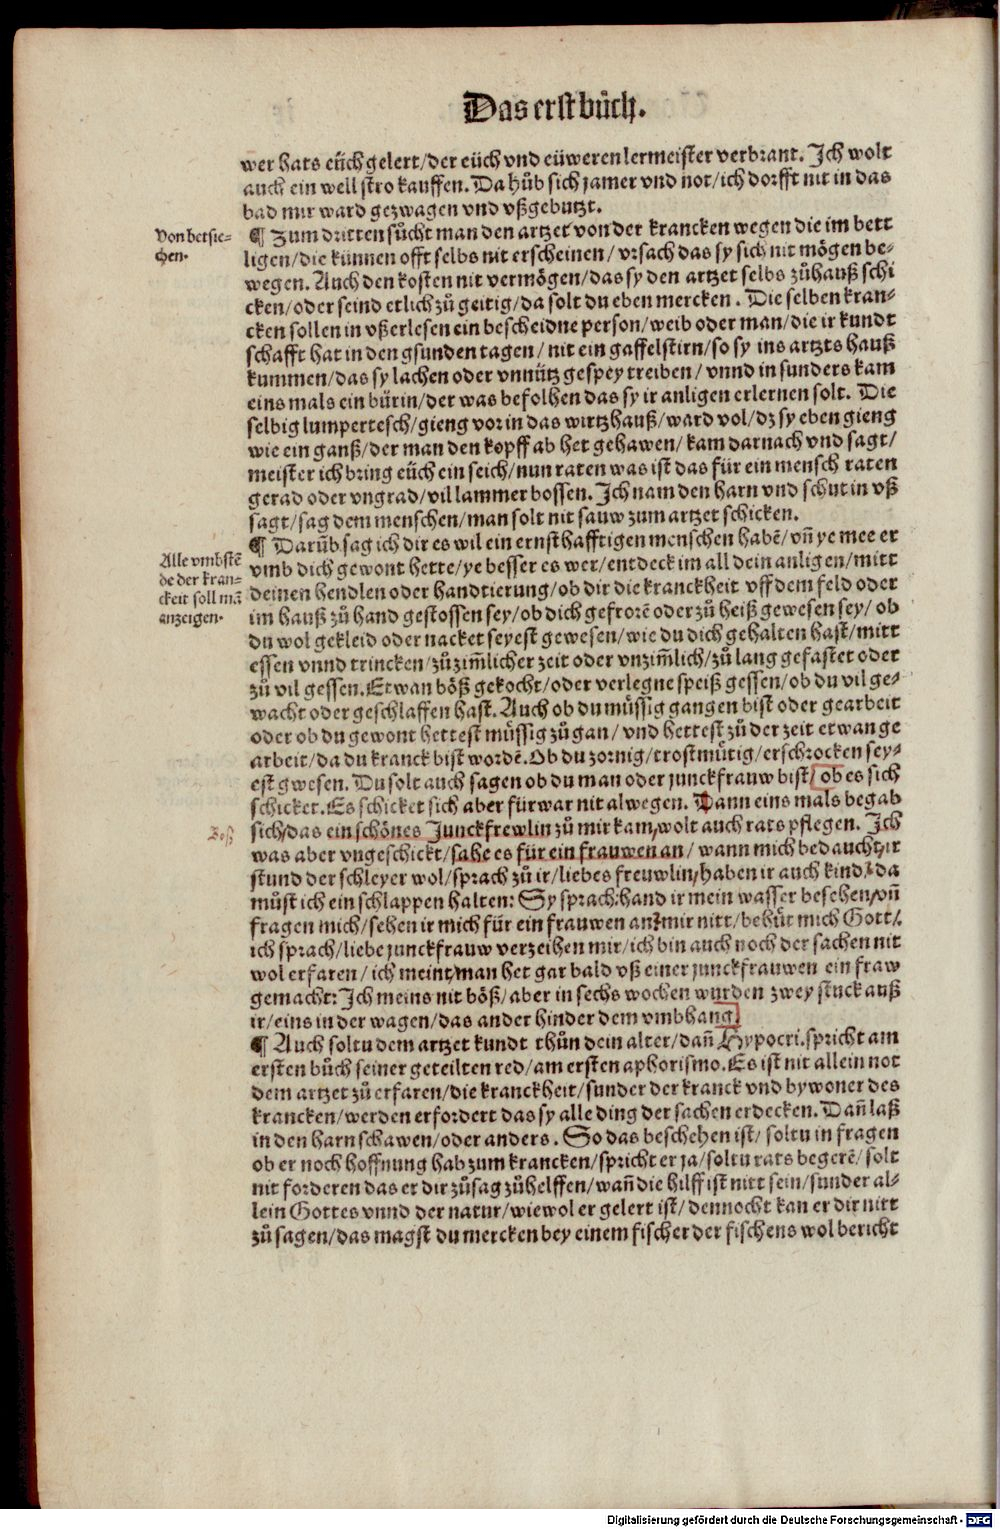 Das erst bůch.
wer hats eüch gelert/der eüch vnd eüweren lermeister verbrant. Ich wolt
auch ein well stro kauffen. Da hůb sich jamer vnd not/ich dorfft nit in das
bad mir ward gezwagen vnd vßgebutzt.
Von betsie-
chen.
¶ Zum dritten sůcht man den artzet von der krancken wegen die im bett
ligen/die künnen offt selbs nit erscheinen/vrsach das sy sich nit mögen be-
wegen. Auch den kosten nit vermögen/das sy den artzet selbs zůhauß schi
cken/oder seind etlich zů geitig/da solt du eben mercken. Die selben kran-
cken sollen in vßerlesen ein bescheidne person/weib oder man/die ir kundt
schafft hat in den gsunden tagen/nit ein gaffelstirn/so sy ins artzts hauß
kummen/das sy lachen oder vnnütz gespey treiben/vnnd in sunders kam
eins mals ein bürin/der was befolhen das sy ir anligen erlernen solt. Die
selbig lumpertesch/gieng vor in das wirtzhauß/ward vol/dz sy eben gieng
wie ein ganß/der man den kopff ab het gehawen/kam darnach vnd sagt/
meister ich bring eüch ein seich/nun raten was ist das für ein mensch raten
gerad oder vngrad/vil lammer bossen. Ich nam den harn vnd schut in vß
sagt/sag dem menschen/man solt nit sauw zum artzet schicken.
Alle vmbstē
de der kran-
ckeit soll mā
anzeigen.
¶ Darūb sag ich dir es wil ein ernsthafftigen menschen habē/vn̄ ye mee er
vmb dich gewont hette/ye besser es wer/entdeck im all dein anligen/mitt
deinen hendlen oder handtierung/ob dir die kranckheit vff dem feld oder
im hauß zů hand gestossen sey/ob dich gefrorē oder zů heiß gewesen sey/ob
du wol gekleid oder nacket seyest gewesen/wie du dich gehalten hast/mitt
essen vnnd trincken/zů zim̄licher zeit oder vnzim̄lich/zů lang gefastet oder
zů vil gessen. Etwan böß gekocht/oder verlegne speiß gessen/ob du vil ge-
wacht oder geschlaffen hast. Auch ob du müssig gangen bist oder gearbeit
oder ob du gewont hettest müssig zů gan/vnd hettest zů der zeit etwan ge
arbeit/da du kranck bist wordē. Ob du zornig/trostmütig/erschrocken sey-
est gwesen. Du solt auch sagen ob du man oder junckfrauw bist/ob es sich
schicket. Es schicket sich aber fürwar nit alwegen. Dann eins mals begab
Boß
sich/das ein schönes Junckfrewlin zů mir kam/wolt auch rats pflegen. Ich
was aber vngeschickt/sahe es für ein frauwen an/wann mich bedaucht/ir
stund der schleyer wol/sprach zů ir/liebes freuwlin/haben ir auch kind? da
můst ich ein schlappen halten: Sy sprach/hand ir mein wasser besehen/vn̄
fragen mich/sehen ir mich für ein frauwen an? mir nitt/behüt mich Gott/
ich sprach/liebe junckfrauw verzeihen mir/ich bin auch noch der sachen nit
wol erfaren/ich meint/man het gar bald vß einer junckfrauwen ein fraw
gemacht: Ich meins nit böß/aber in sechs wochen wurden zwey stuck auß
ir/eins in der wagen/das ander hinder dem vmbhang.
¶ Auch soltu dem artzet kundt thůn dein alter/dan̄ Hypocri. spricht am
ersten bůch seiner geteilten red/am ersten aphorismo. Es ist nit allein not
dem artzet zů erfaren/die kranckheit/sunder der kranck vnd bywoner des
krancken/werden erfordert das sy alle ding der sachen erdecken. Dan̄ laß
in den harn schawen/oder anders. So das beschehen ist/soltu in fragen
ob er noch hoffnung hab zum krancken/spricht er ja/soltu rats begerē/solt
nit forderen das er dir zůsag zůhelffen/wan̄ die hilff ist nitt sein/sunder al-
lein Gottes vnnd der natur/wiewol er gelert ist/dennocht kan er dir nitt
zů sagen/das magst du mercken bey einem fischer der fischens wol bericht
Digitalisierung gefördert durch die Deutsche Forschungsgemeinschaft - DFG